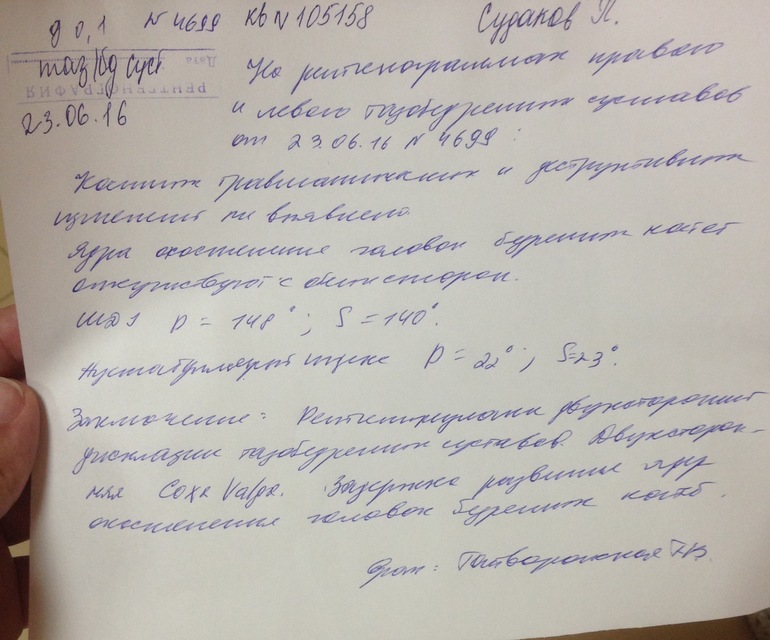 д 0,1 N 4699 Кв N 105158 Судаков П.
таз/бд суст
Дата
РЕНТГЕНОГРАФИЯ
23.06.16
На рентгенограммах правого
и левого тазобедренных суставов
от 23.06.16 N 4699:
Костных травматических и деструктивных
изменений не выявлено.
Ядра окостенения головок бедренных костей
отсутствуют с обеих сторон.
ШДУ D = 148°; S = 140°.
Ацетабулярный индекс D = 22°; S=23°.
Заключение: двухсторонней
дисплазии тазобедренных суставов. Двухсторон-
няя Coxa Valga. Задержка развития ядер
окостенения головок бедренных костей.